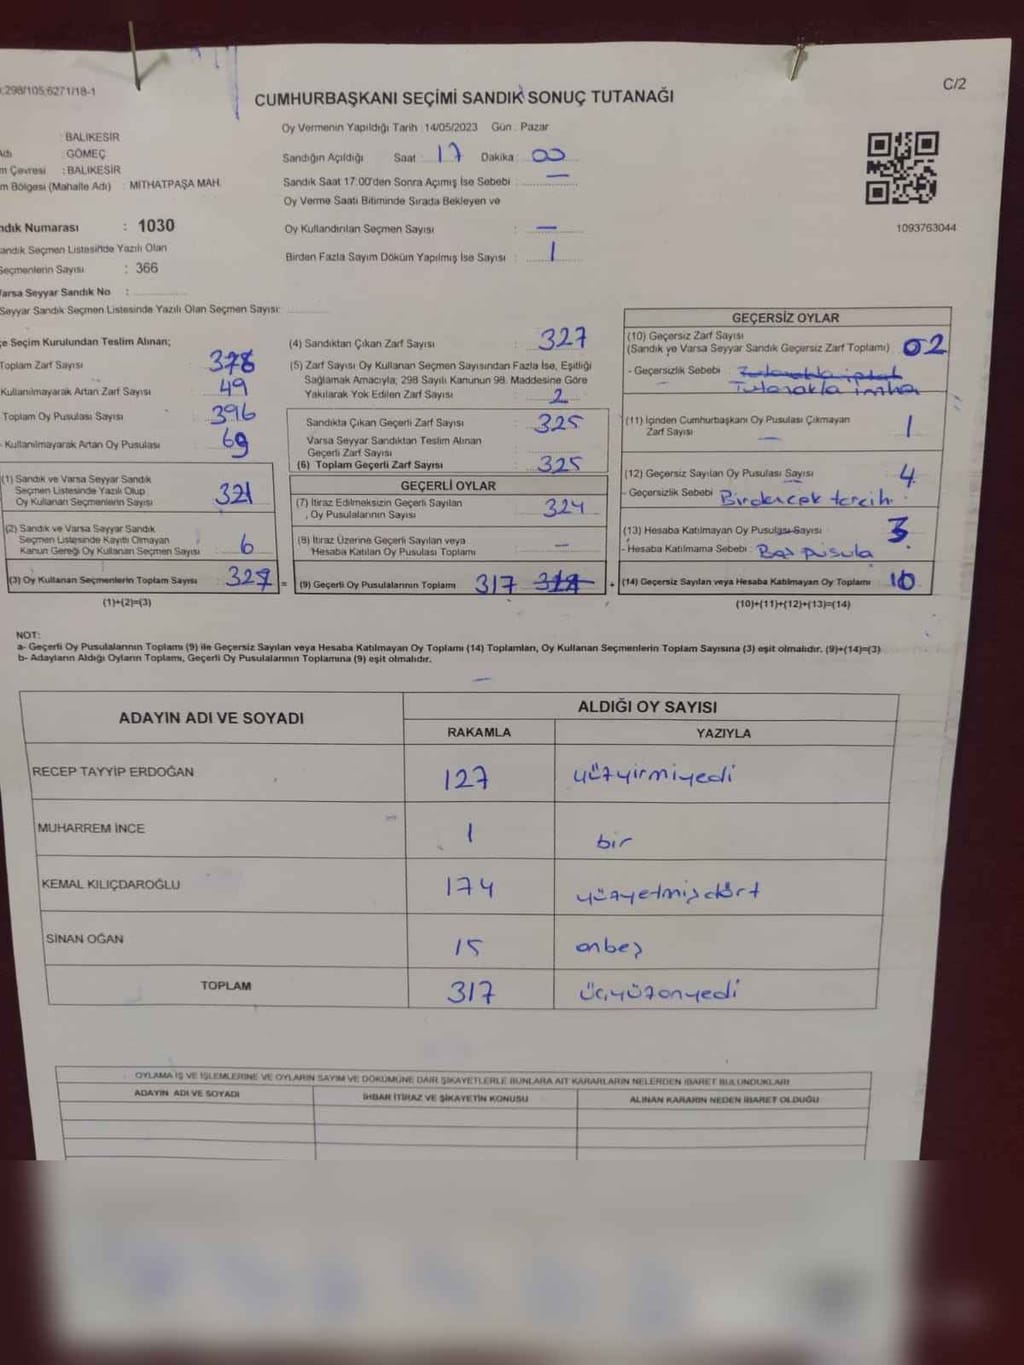 298/105;6271/18-1
C/2
CUMHURBAŞKANI SEÇİMİ SANDIK SONUÇ TUTANAĞI
Oy Vermenin Yapıldığı Tarih : 14/05/2023 Gün : Pazar
: BALIKESİR
: GÖMEÇ
Çevresi : BALIKESİR
Bölgesi (Mahalle Adı) : MİTHATPAŞA MAH.
Sandığın Açıldığı Saat : 17 Dakika : 00
Sandık Saat 17:00'den Sonra Açılmış İse Sebebi : —
Oy Verme Saati Bitiminde Sırada Bekleyen ve
Oy Kullandırılan Seçmen Sayısı : —
Birden Fazla Sayım Döküm Yapılmış İse Sayısı : 1
1093763044
Numarası : 1030
Seçmen Listesinde Yazılı Olan
Seçmenlerin Sayısı : 366
Varsa Seyyar Sandık No :
Seyyar Sandık Seçmen Listesinde Yazılı Olan Seçmen Sayısı:
Seçim Kurulundan Teslim Alınan;
Toplam Zarf Sayısı 376
Kullanılmayarak Artan Zarf Sayısı 49
Toplam Oy Pusulası Sayısı 396
- Kullanılmayarak Artan Oy Pusulası 69
(1) Sandık ve Varsa Seyyar Sandık
Seçmen Listesinde Yazılı Olup
Oy Kullanan Seçmenlerin Sayısı 321
(2) Sandık ve Varsa Seyyar Sandık
Seçmen Listesinde Kayıtlı Olmayan
Kanun Gereği Oy Kullanan Seçmen Sayısı 6
(3) Oy Kullanan Seçmenlerin Toplam Sayısı 327 =
(1)+(2)=(3)
(4) Sandıktan Çıkan Zarf Sayısı : 327
(5) Zarf Sayısı Oy Kullanan Seçmen Sayısından Fazla İse, Eşitliği
Sağlamak Amacıyla; 298 Sayılı Kanunun 98. Maddesine Göre
Yakılarak Yok Edilen Zarf Sayısı : 2
Sandıkta Çıkan Geçerli Zarf Sayısı : 325
Varsa Seyyar Sandıktan Teslim Alınan
Geçerli Zarf Sayısı
(6) Toplam Geçerli Zarf Sayısı : 325
GEÇERLİ OYLAR
(7) İtiraz Edilmeksizin Geçerli Sayılan
Oy Pusulalarının Sayısı : 324
(8) İtiraz Üzerine Geçerli Sayılan veya
Hesaba Katılan Oy Pusulası Toplamı : —
(9) Geçerli Oy Pusulalarının Toplamı 317 +
GEÇERSİZ OYLAR
(10) Geçersiz Zarf Sayısı
(Sandık ve Varsa Seyyar Sandık Geçersiz Zarf Toplamı) : 02
- Geçersizlik Sebebi : Tutanakla iptal
Tutanakla imha
(11) İçinden Cumhurbaşkanı Oy Pusulası Çıkmayan
Zarf Sayısı : 1
—
(12) Geçersiz Sayılan Oy Pusulası Sayısı : 4
- Geçersizlik Sebebi : Birdençok tercih
(13) Hesaba Katılmayan Oy Pusulası Sayısı : 3
- Hesaba Katılmama Sebebi : Boş pusula
(14) Geçersiz Sayılan veya Hesaba Katılmayan Oy Toplamı : 10
(10)+(11)+(12)+(13)=(14)
NOT:
a- Geçerli Oy Pusulalarının Toplamı (9) ile Geçersiz Sayılan veya Hesaba Katılmayan Oy Toplamı (14) Toplamları, Oy Kullanan Seçmenlerin Toplam Sayısına (3) eşit olmalıdır. (9)+(14)=(3)
b- Adayların Aldığı Oyların Toplamı, Geçerli Oy Pusulalarının Toplamına (9) eşit olmalıdır.
ADAYIN ADI VE SOYADI
ALDIĞI OY SAYISI
RAKAMLA YAZIYLA
RECEP TAYYİP ERDOĞAN 127 yüzyirmiyedi
MUHARREM İNCE 1 bir
KEMAL KILIÇDAROĞLU 174 yüzyetmişdört
SİNAN OĞAN 15 onbeş
TOPLAM 317 üçyüzonyedi
OYLAMA İŞ VE İŞLEMLERİNE VE OYLARIN SAYIM VE DÖKÜMÜNE DAİR ŞİKAYETLERLE BUNLARA AİT KARARLARIN NELERDEN İBARET BULUNDUKLARI
ADAYIN ADI VE SOYADI İHBAR İTİRAZ VE ŞİKAYETİN KONUSU ALINAN KARARIN NEDEN İBARET OLDUĞU